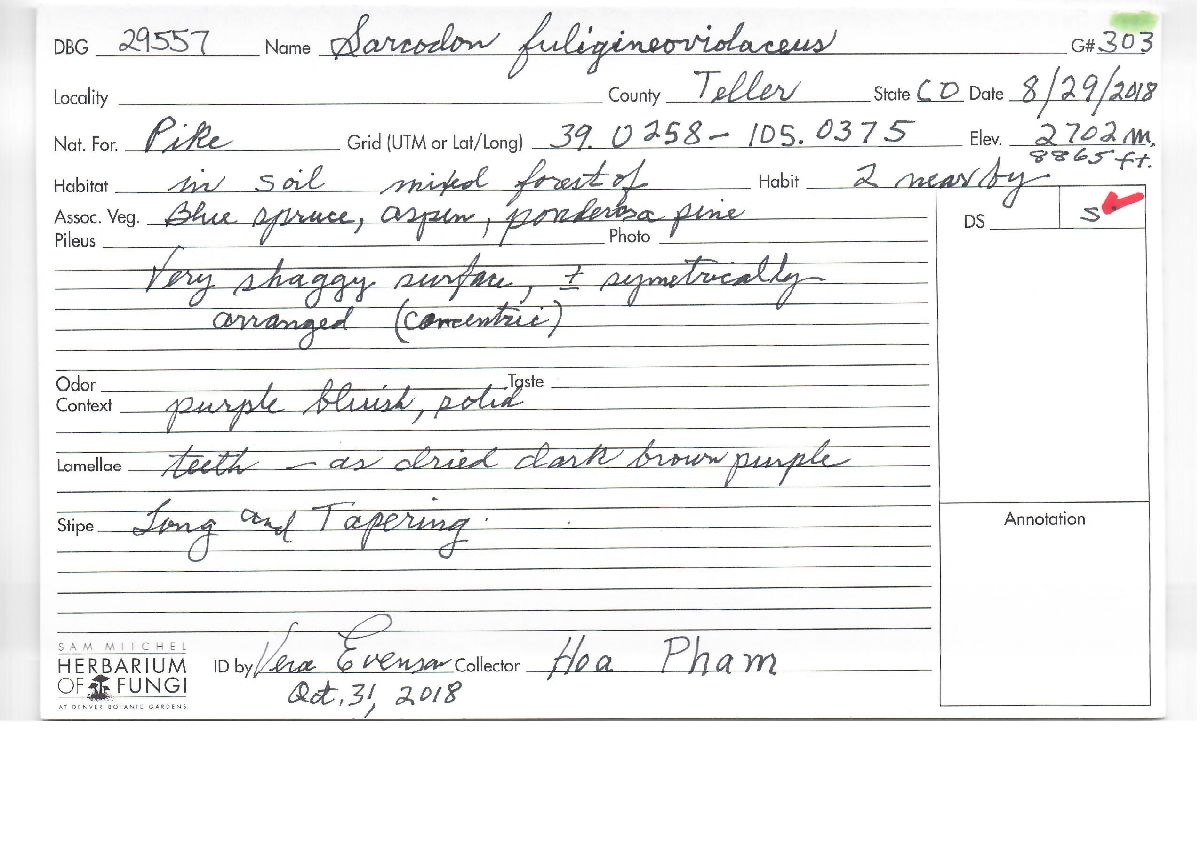 DBG 29557 Name Sarcodon fuligineoviolaceus G# 303
Locality County Teller State CO Date 8/29/2018
Nat. For. Pike Grid (UTM or Lat/Long) 39.0258 - 105.0375 Elev. 2702 m,
8865 ft.
Habitat in soil mixed forest of Habit 2 nearby
Assoc. Veg. Blue spruce, aspen, ponderosa pine DS S
Pileus Photo
Very shaggy surface, ± symetrically
arranged (concentric)
Odor Taste
Context purple bluish, solid
Lamellae teeth - as dried dark brown purple
Stipe Long and Tapering.
Annotation
SAM MITCHEL
HERBARIUM
OF FUNGI
AT DENVER BOTANIC GARDENS
ID by Vera Evenson Collector Hoa Pham
Oct. 31, 2018